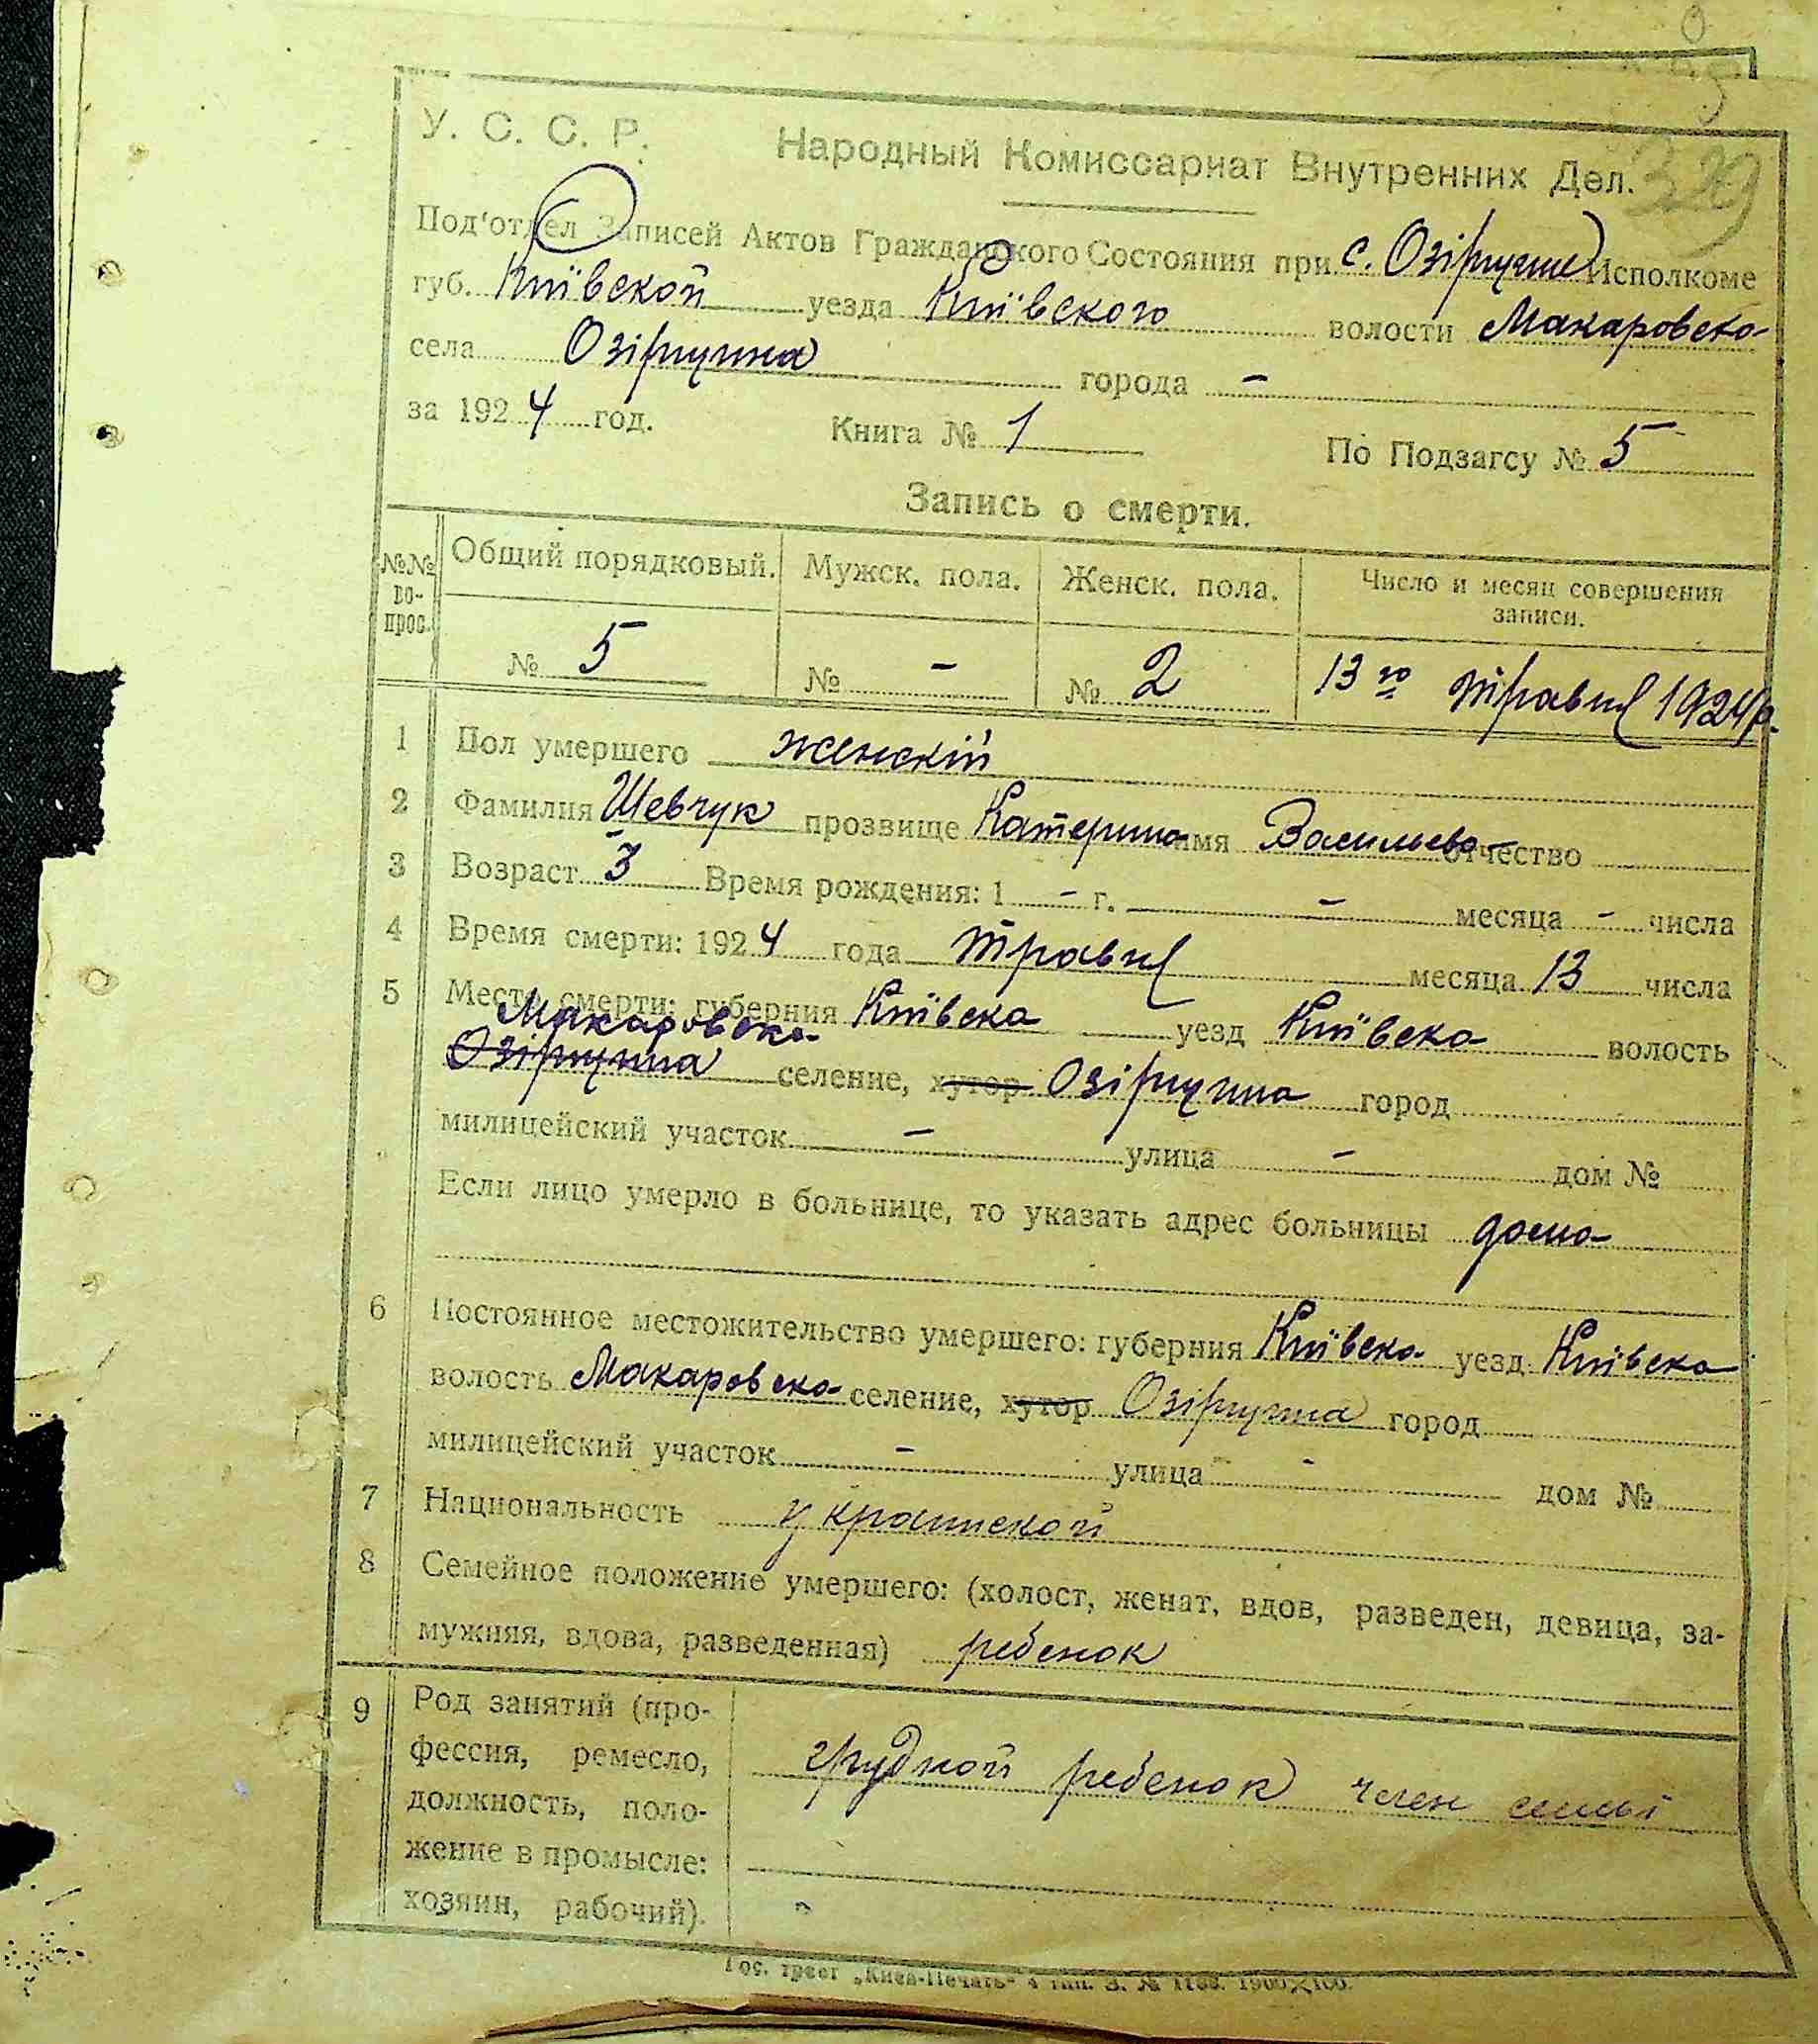 329
У. С. С. Р. Народный Комиссариат Внутренних Дел.
Под‘отдел Записей Актов Гражданского Состояния при с. Озірщине Исполкоме
губ. Київской уезда Київского волости Макаровско-
села Озірщина города -
за 1924 год. Книга № 1 По Подзагсу № 5
Запись о смерти.
№№ во-прос. Общий порядковый. Мужск. пола. Женск. пола. Число и месяц совершения записи.
№ 5 № - № 2 13го травня 1924р.
1 Пол умершего женскій
2 Фамилия Шевчук прозвище Катерина имя Васильево- отчество
3 Возраст 3 Время рождения: 1 - г. - месяца - числа
4 Время смерти: 1924 года травня месяца 13 числа
5 Место смерти: губерния Київска уезд Київска волость
Макаровско-
Озірщина селение, хутор Озірщина город
милицейский участок - улица - дом №
Если лицо умерло в больнице, то указать адрес больницы дома
6 Постоянное местожительство умершего: губерния Київска уезд Київска
волость Макаровска селение, хутор Озірщина город
милицейский участок - улица - дом №
7 Национальность украинской
8 Семейное положение умершего: (холост, женат, вдов, разведен, девица, за-
мужняя, вдова, разведенная) ребенок
9 Род занятий (про-
фессия, ремесло, грудной ребенок член семьі
должность, поло-
жение в промысле:
хозяин, рабочий).
Гос. трест „Киев-Печать“ 4 тип. З. № 1188. 1900×100.